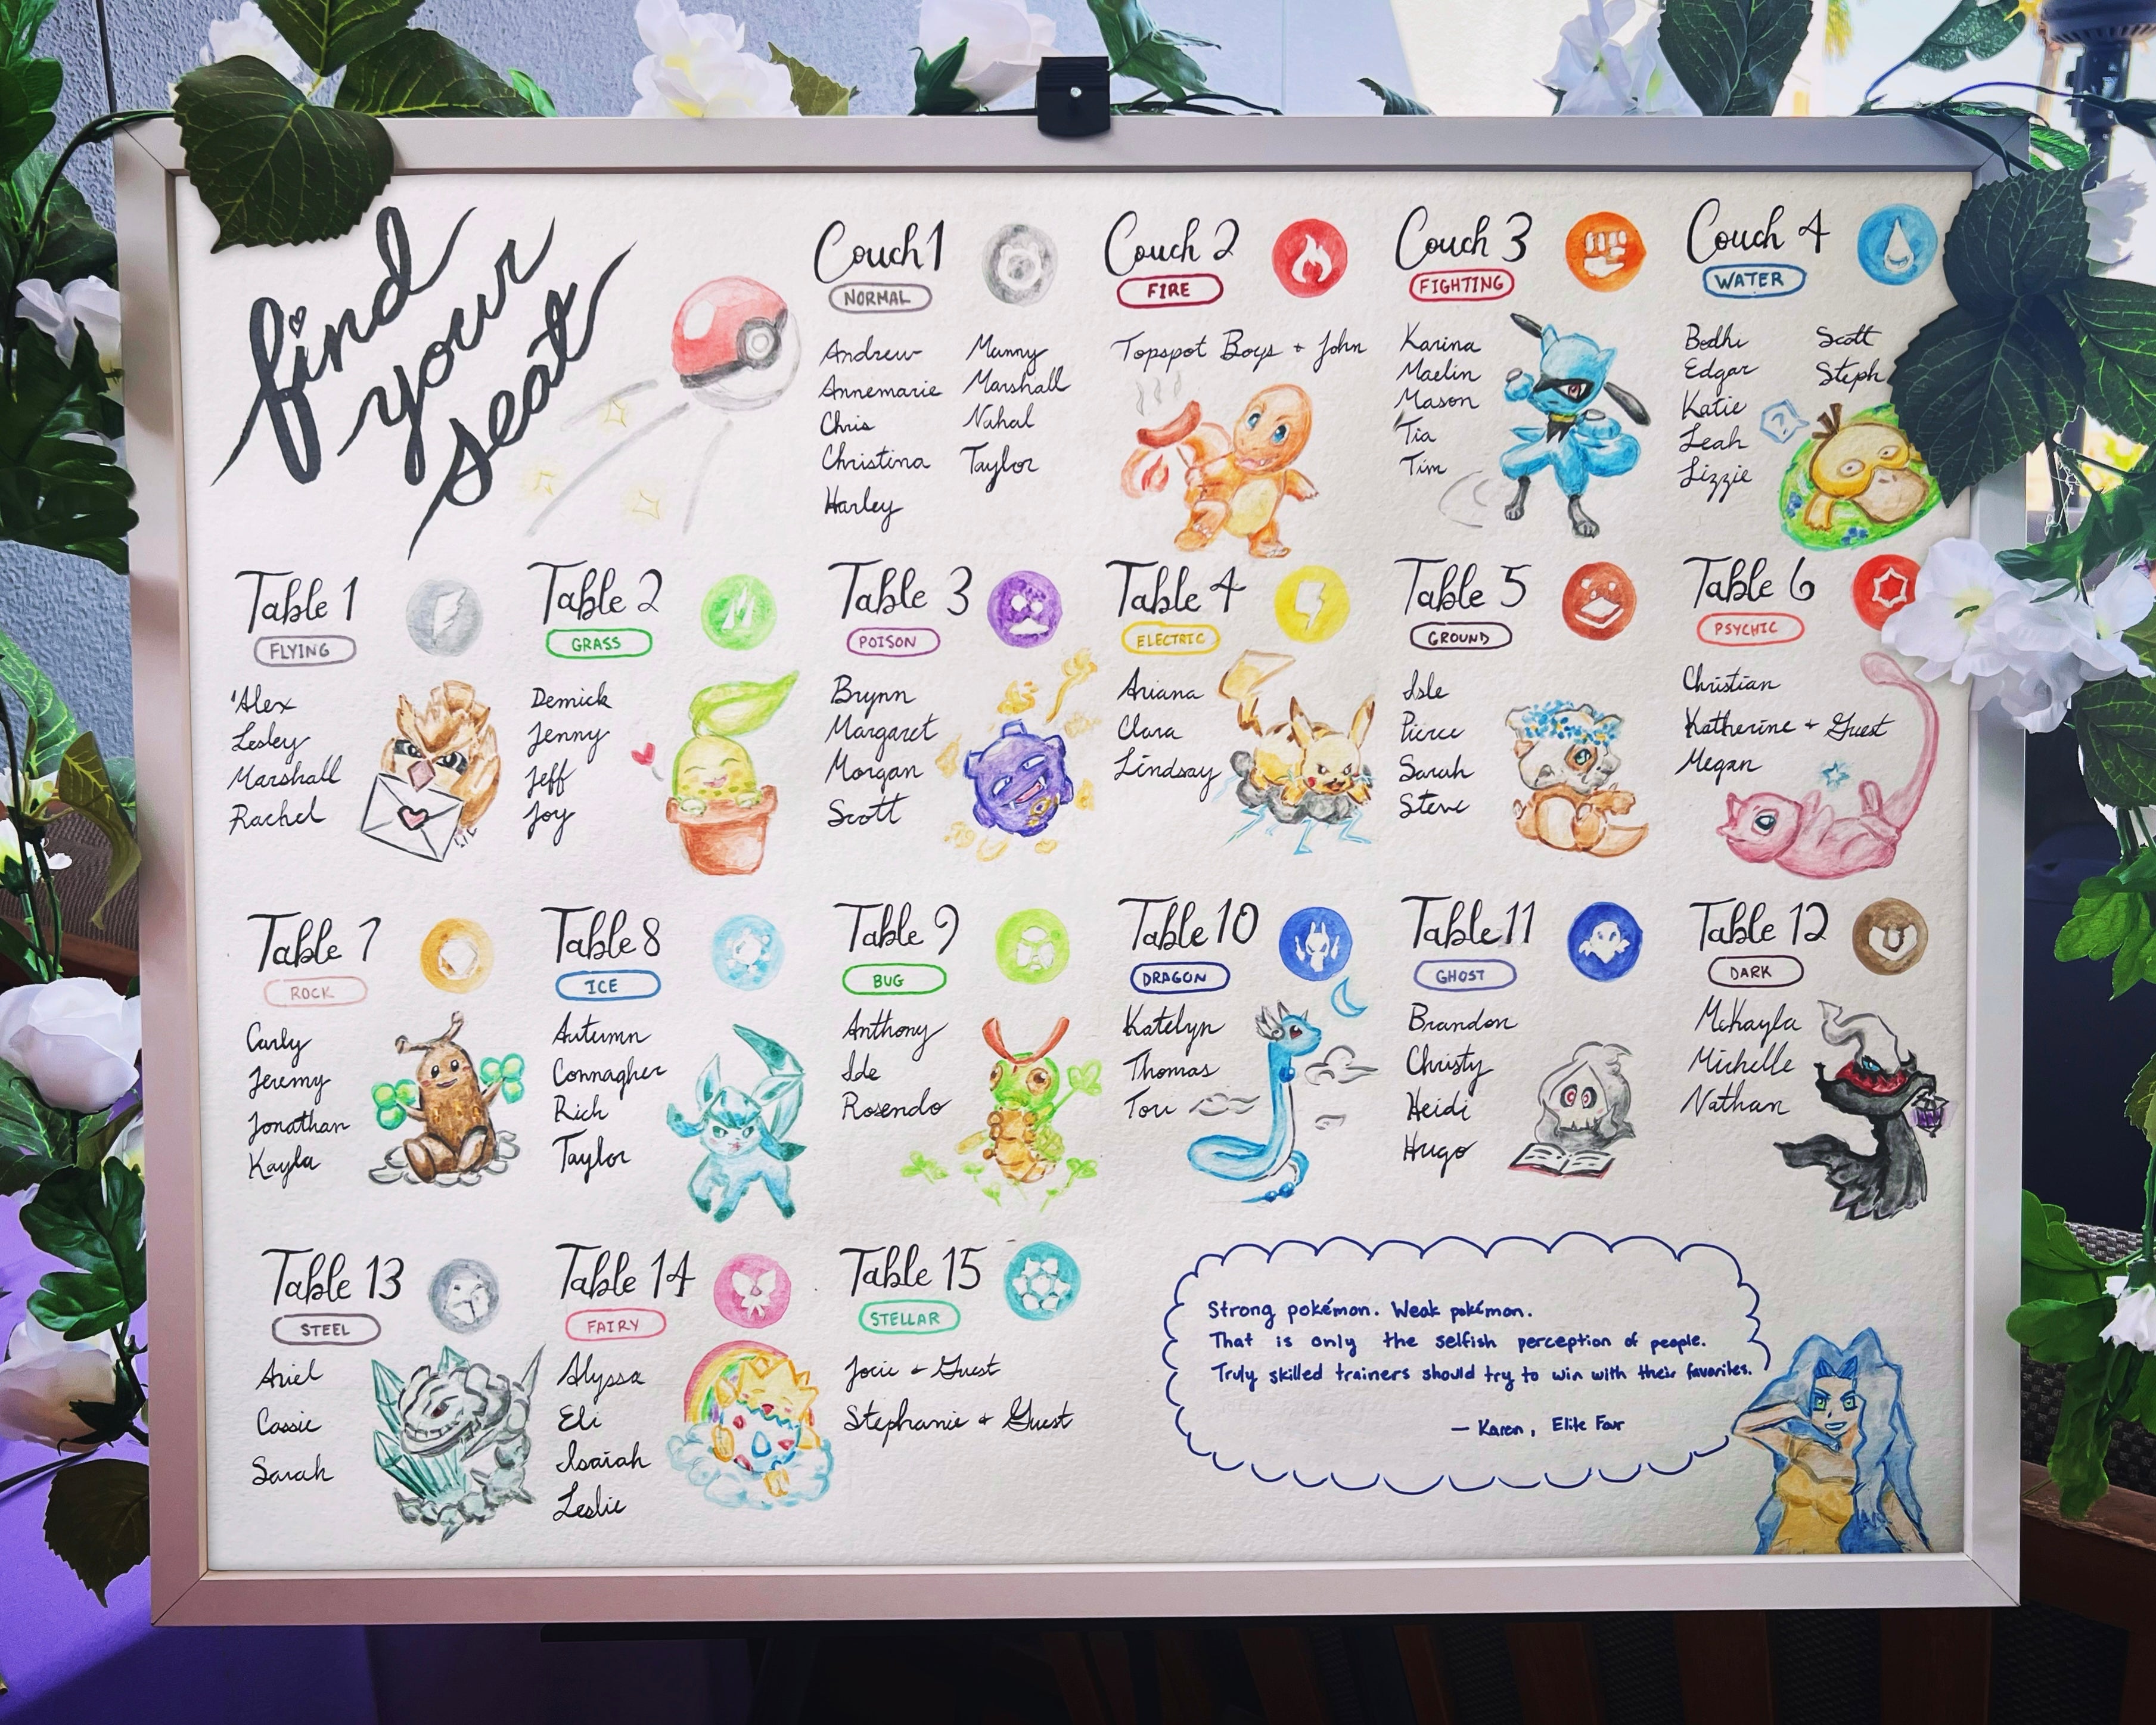 find
your
seat
Couch 1
NORMAL
Andrew
Annemarie
Chris
Christina
Harley
Manny
Marshall
Nahal
Taylor
Couch 2
FIRE
Topspot Boys + John
Couch 3
FIGHTING
Karina
Maelin
Mason
Tia
Tim
Couch 4
WATER
Bodhi
Edgar
Katie
Leah
Lizzie
Scott
Steph
?
Table 1
FLYING
Alex
Lesley
Marshall
Rachel
Table 2
GRASS
Demick
Jenny
Jeff
Joy
Table 3
POISON
Brynn
Margaret
Morgan
Scott
Table 4
ELECTRIC
Ariana
Clara
Lindsay
Table 5
GROUND
Isle
Pierce
Sarah
Steve
Table 6
PSYCHIC
Christian
Katherine + Guest
Megan
Table 7
ROCK
Carly
Jeremy
Jonathan
Kayla
Table 8
ICE
Autumn
Connagher
Rich
Taylor
Table 9
BUG
Anthony
Ide
Rosendo
Table 10
DRAGON
Katelyn
Thomas
Tori
Table 11
GHOST
Brandon
Christy
Heidi
Hugo
Table 12
DARK
McKayla
Michelle
Nathan
Table 13
STEEL
Ariel
Cassie
Sarah
Table 14
FAIRY
Alyssa
Eli
Isaiah
Leslie
Table 15
STELLAR
Jocie + Guest
Stephanie + Guest
Strong pokémon. Weak pokémon.
That is only the selfish perception of people.
Truly skilled trainers should try to win with their favorites.
— Karen, Elite Four